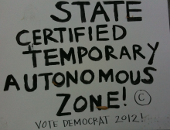 STATE
CERTIFIED
TEMPORARY
AUTONOMOUS
ZONE! ©
VOTE DEMOCRAT 2012!